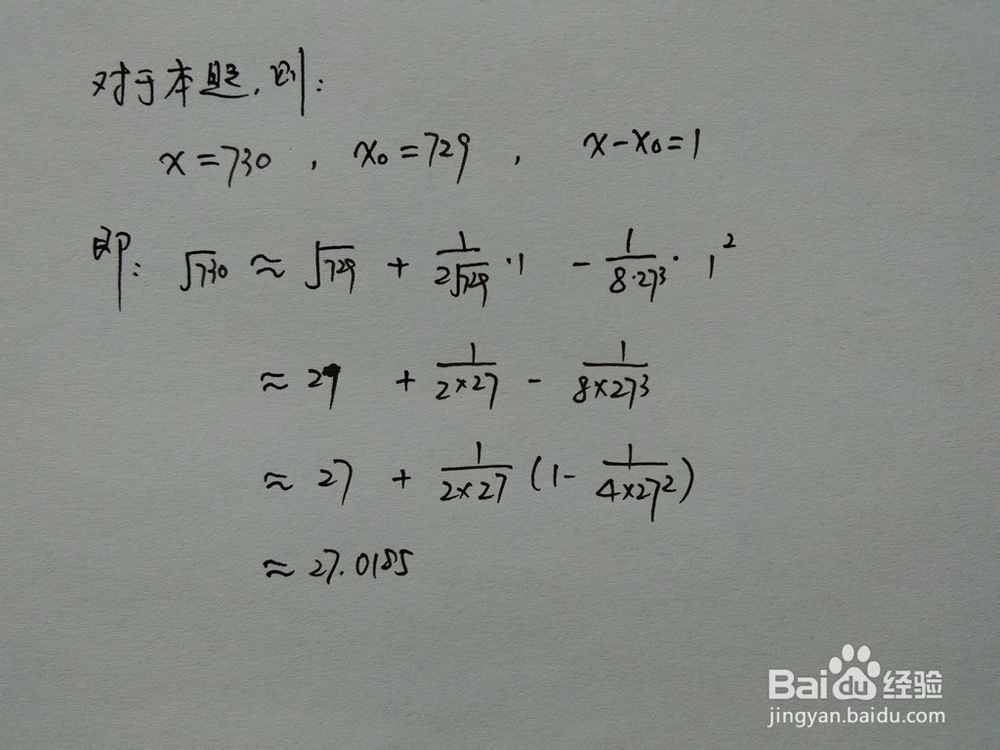 对于本题,则:
x=730 , x₀=729 , x-x₀=1
即: √730 ≈ √729 + 1/(2√729) ·1 - 1/(8·27³) · 1²
≈ 27 + 1/(2×27) - 1/(8×27³)
≈ 27 + 1/(2×27) (1- 1/(4×27²))
≈ 27.0185
Baidu 经验
jingyan.baidu.com